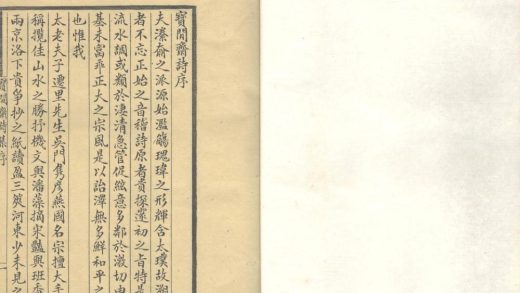 寶閒齋詩序
夫之派源始濫觴瑰瑋之形輝含太璞故溯
者不忘正始之音稽詩原者貴探邃初之旨特是
流水調或類於淒清急管促絃意多鄰於激切
基未富乖正大之宗風是以詒澤無多鮮和平之
也惟我
太老夫子遷里先生吳門雋彥燕國名宗擅大手
稱攬佳山水之勝抒機文與潘藻摛宋豔與班香
兩京洛下貴爭抄之紙讀盈三篋河東少未見之
寶閒齋詩集序